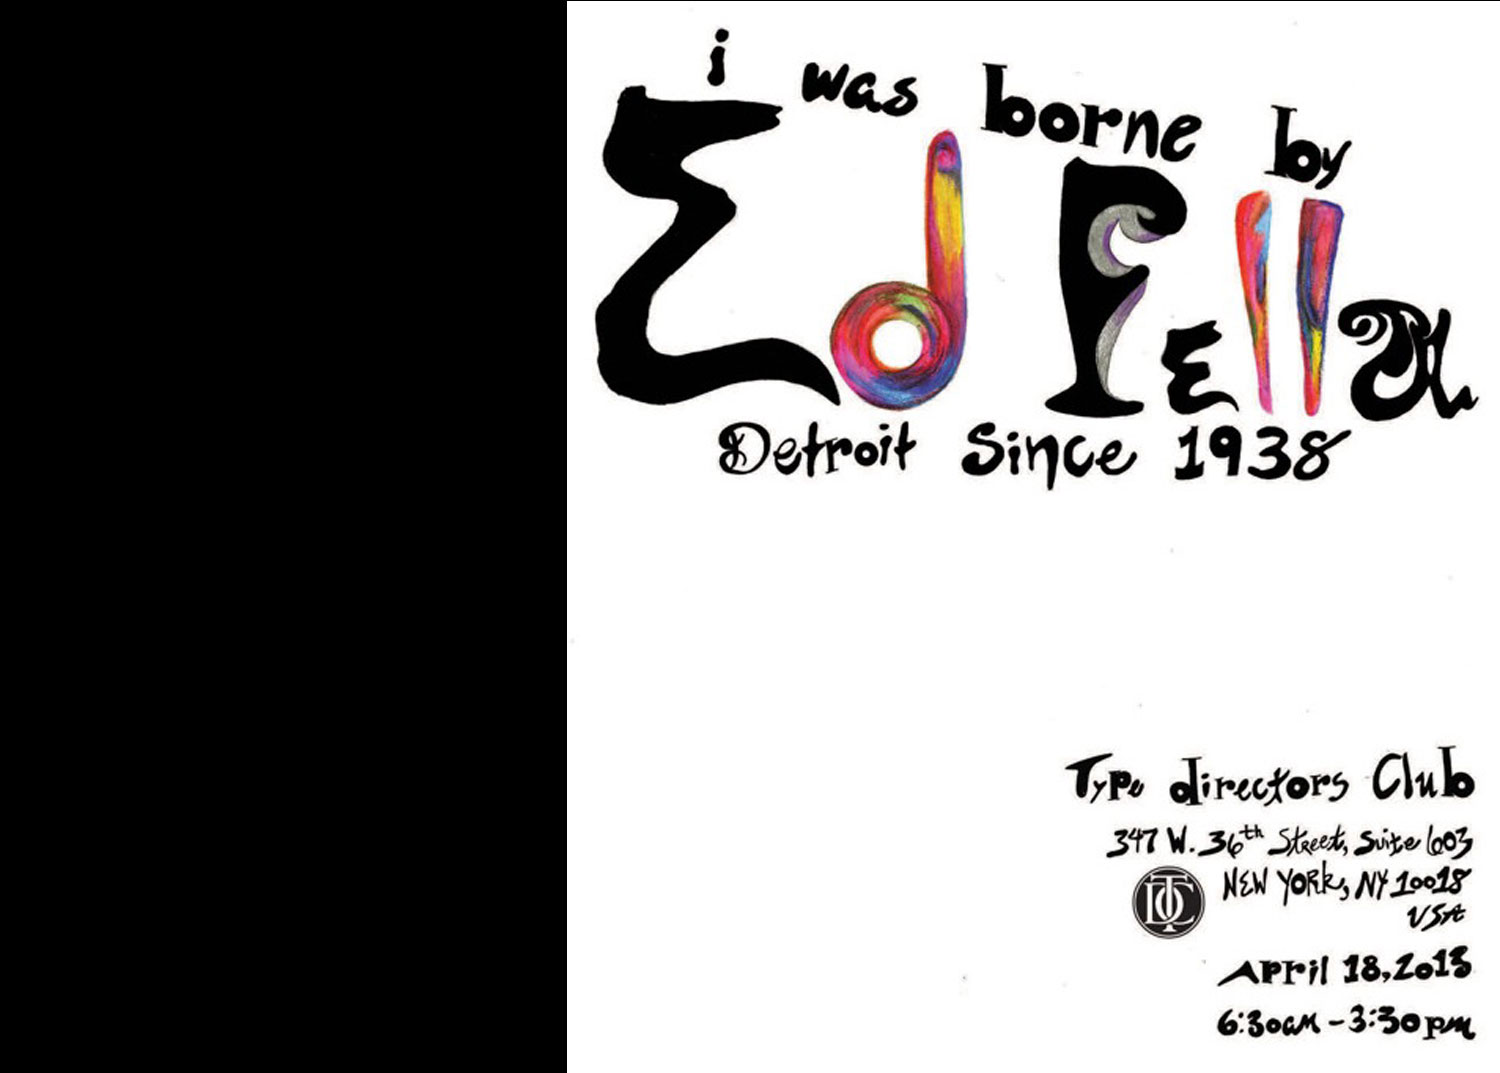 i was borne by
Ed Fella
Detroit Since 1938
Type directors Club
347 W. 36th Street, Suite 603
TDC
NEW YORk, NY 10018
USA
April 18, 2013
6:30am - 3:30pm